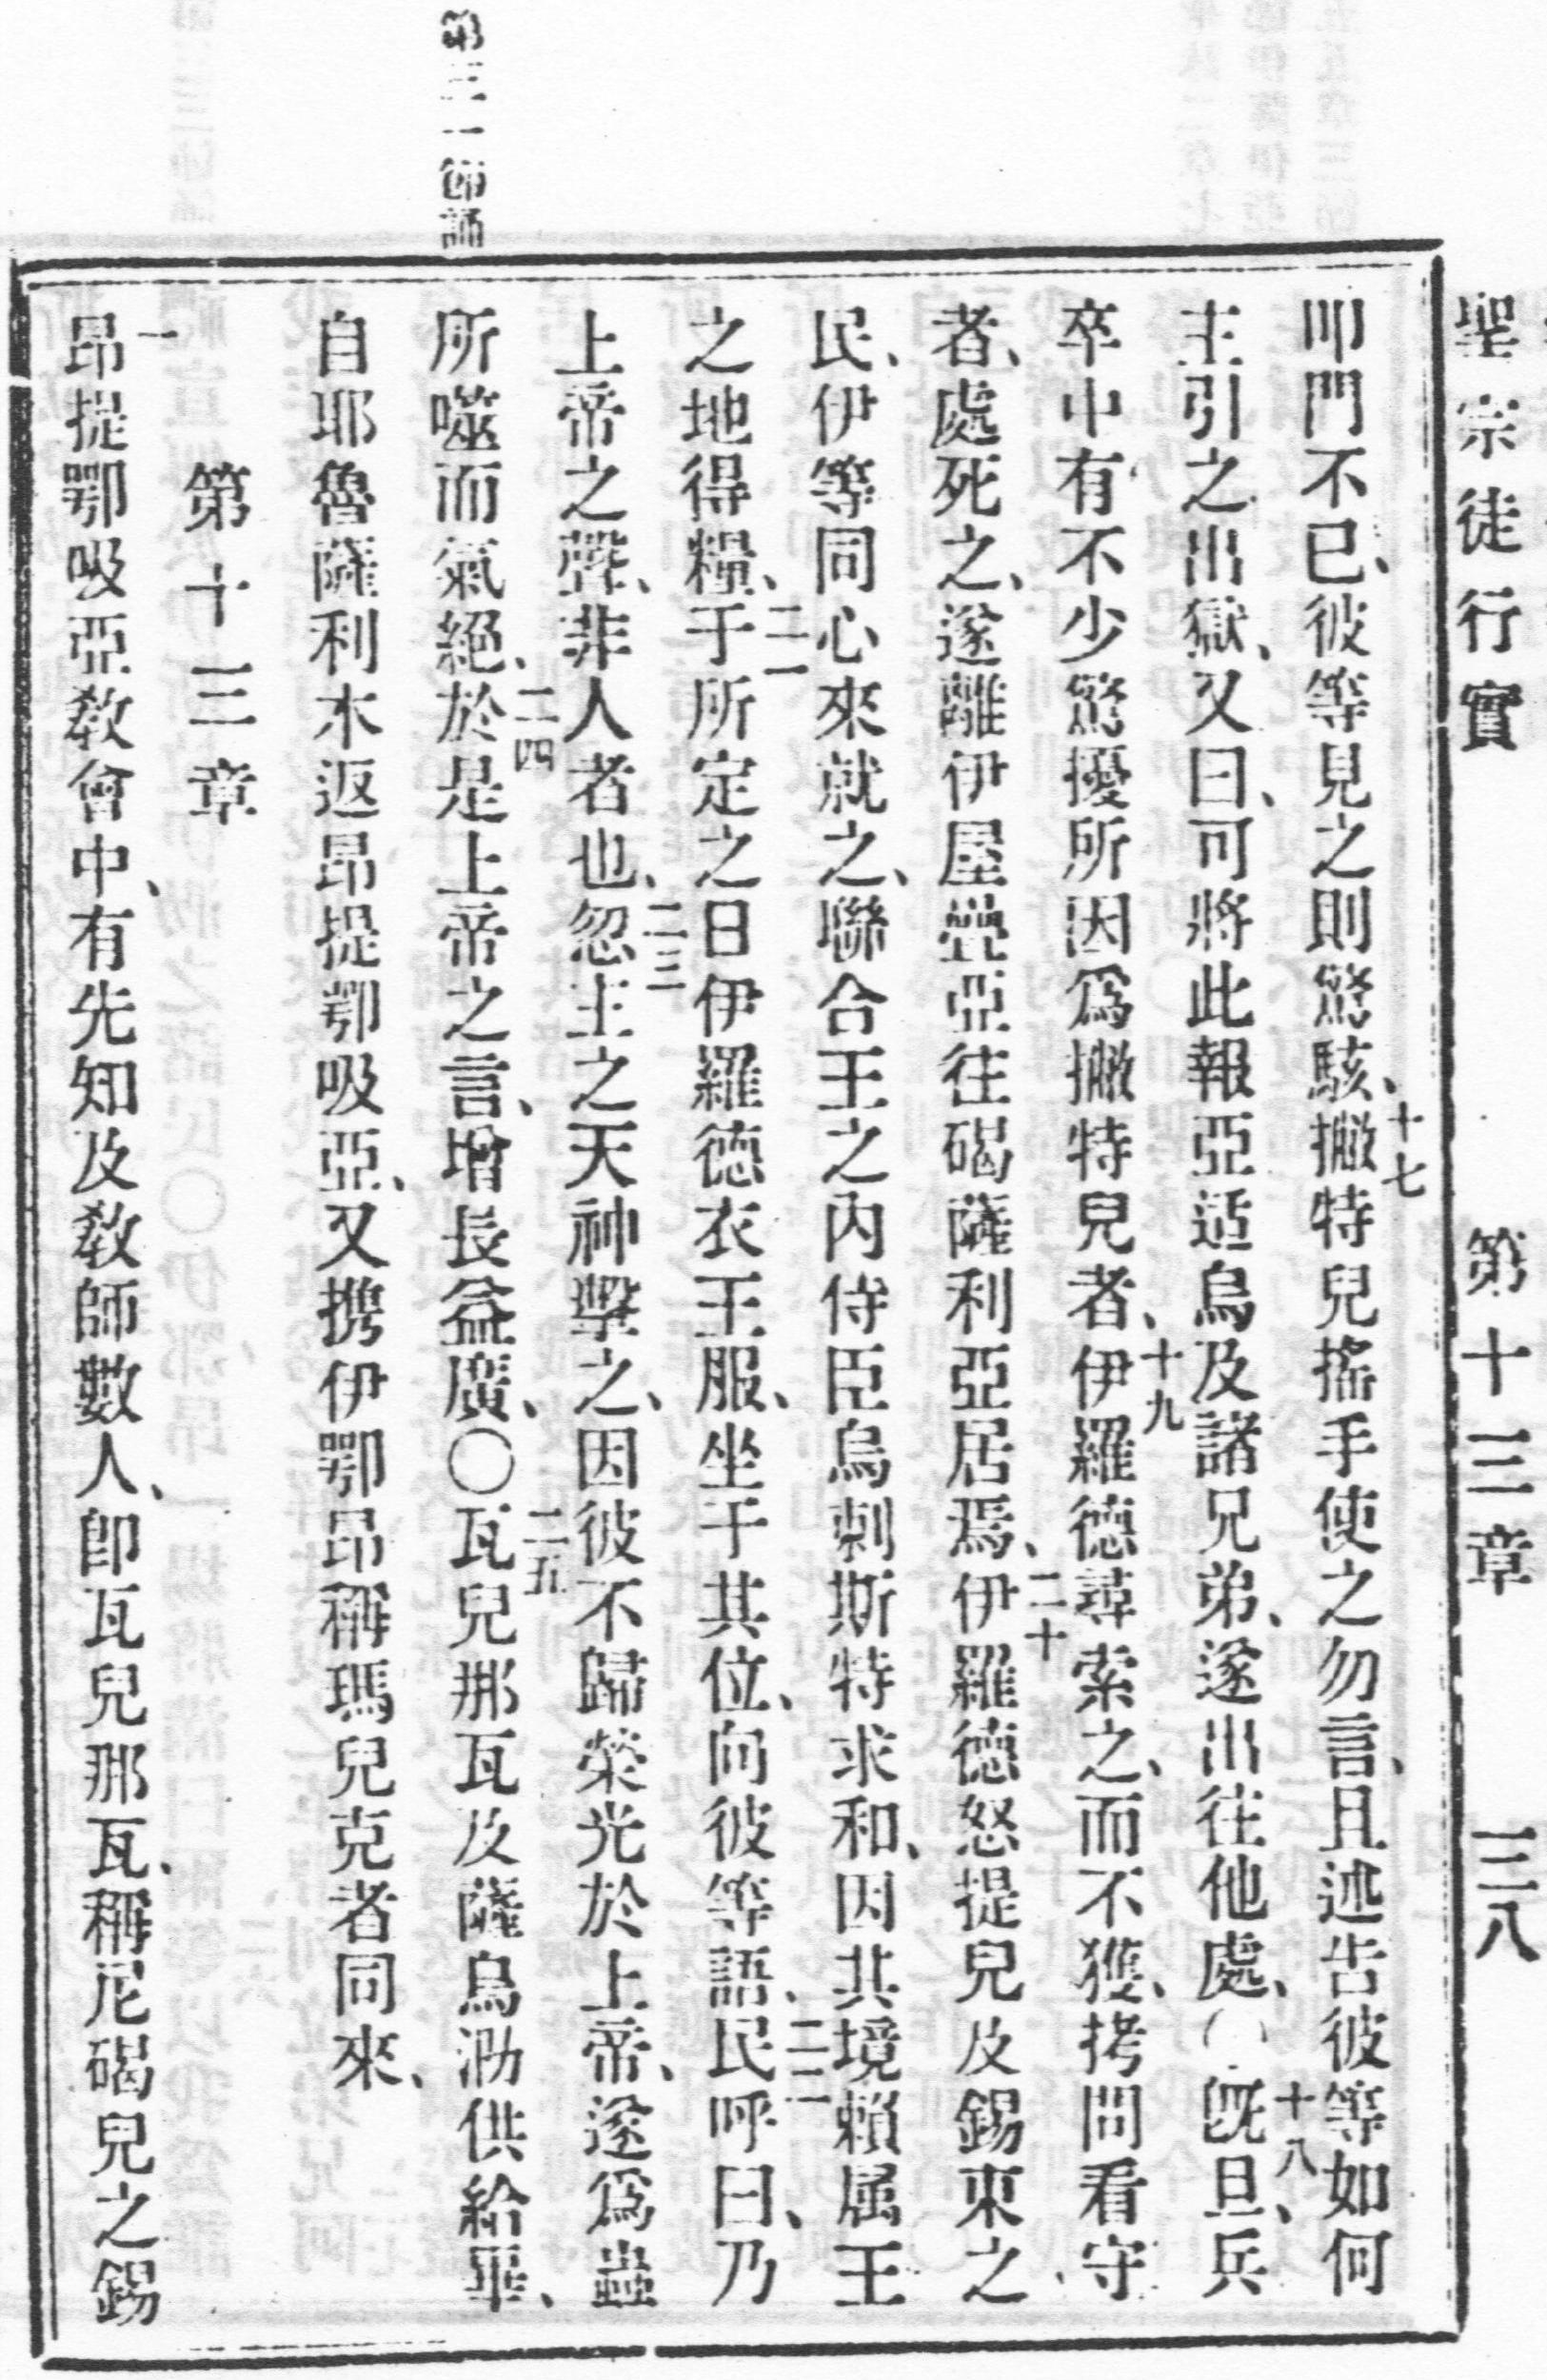 聖宗徒行實　第十三章　三八
叩門不已、彼等見之則驚駭、十七撇特兒搖手使之勿言、且述告彼等如何
主引之出獄、又曰、可將此報亞适烏及諸兄弟、遂出往他處、〇十八旣旦、兵
卒中有不少驚擾所因爲撇特兒者、十九伊羅德尋索之、而不獲、拷問看守
者、處死之、遂離伊屋疊亞往碣薩利亞居焉、二十伊羅德怒提兒及錫東之
民、伊等同心來就之、聯合王之內侍臣烏剌斯特求和、因其境賴属王
之地得糧、二一于所定之日伊羅德衣王服、坐于其位、向彼等語、二二民呼曰、乃
上帝之聲、非人者也、二三忽主之天神擊之、因彼不歸榮光於上帝、遂爲蟲
所噬而氣絕、二四於是上帝之言、增長益廣、〇二五瓦兒那瓦及薩烏泐供給畢、
自耶魯薩利木返昂提鄂吸亞、又携伊鄂昂稱瑪兒克者同來、
第十三章
一昂提鄂吸亞敎會中、有先知及敎師數人、卽瓦兒那瓦、稱尼碣兒之錫
第三一節誦